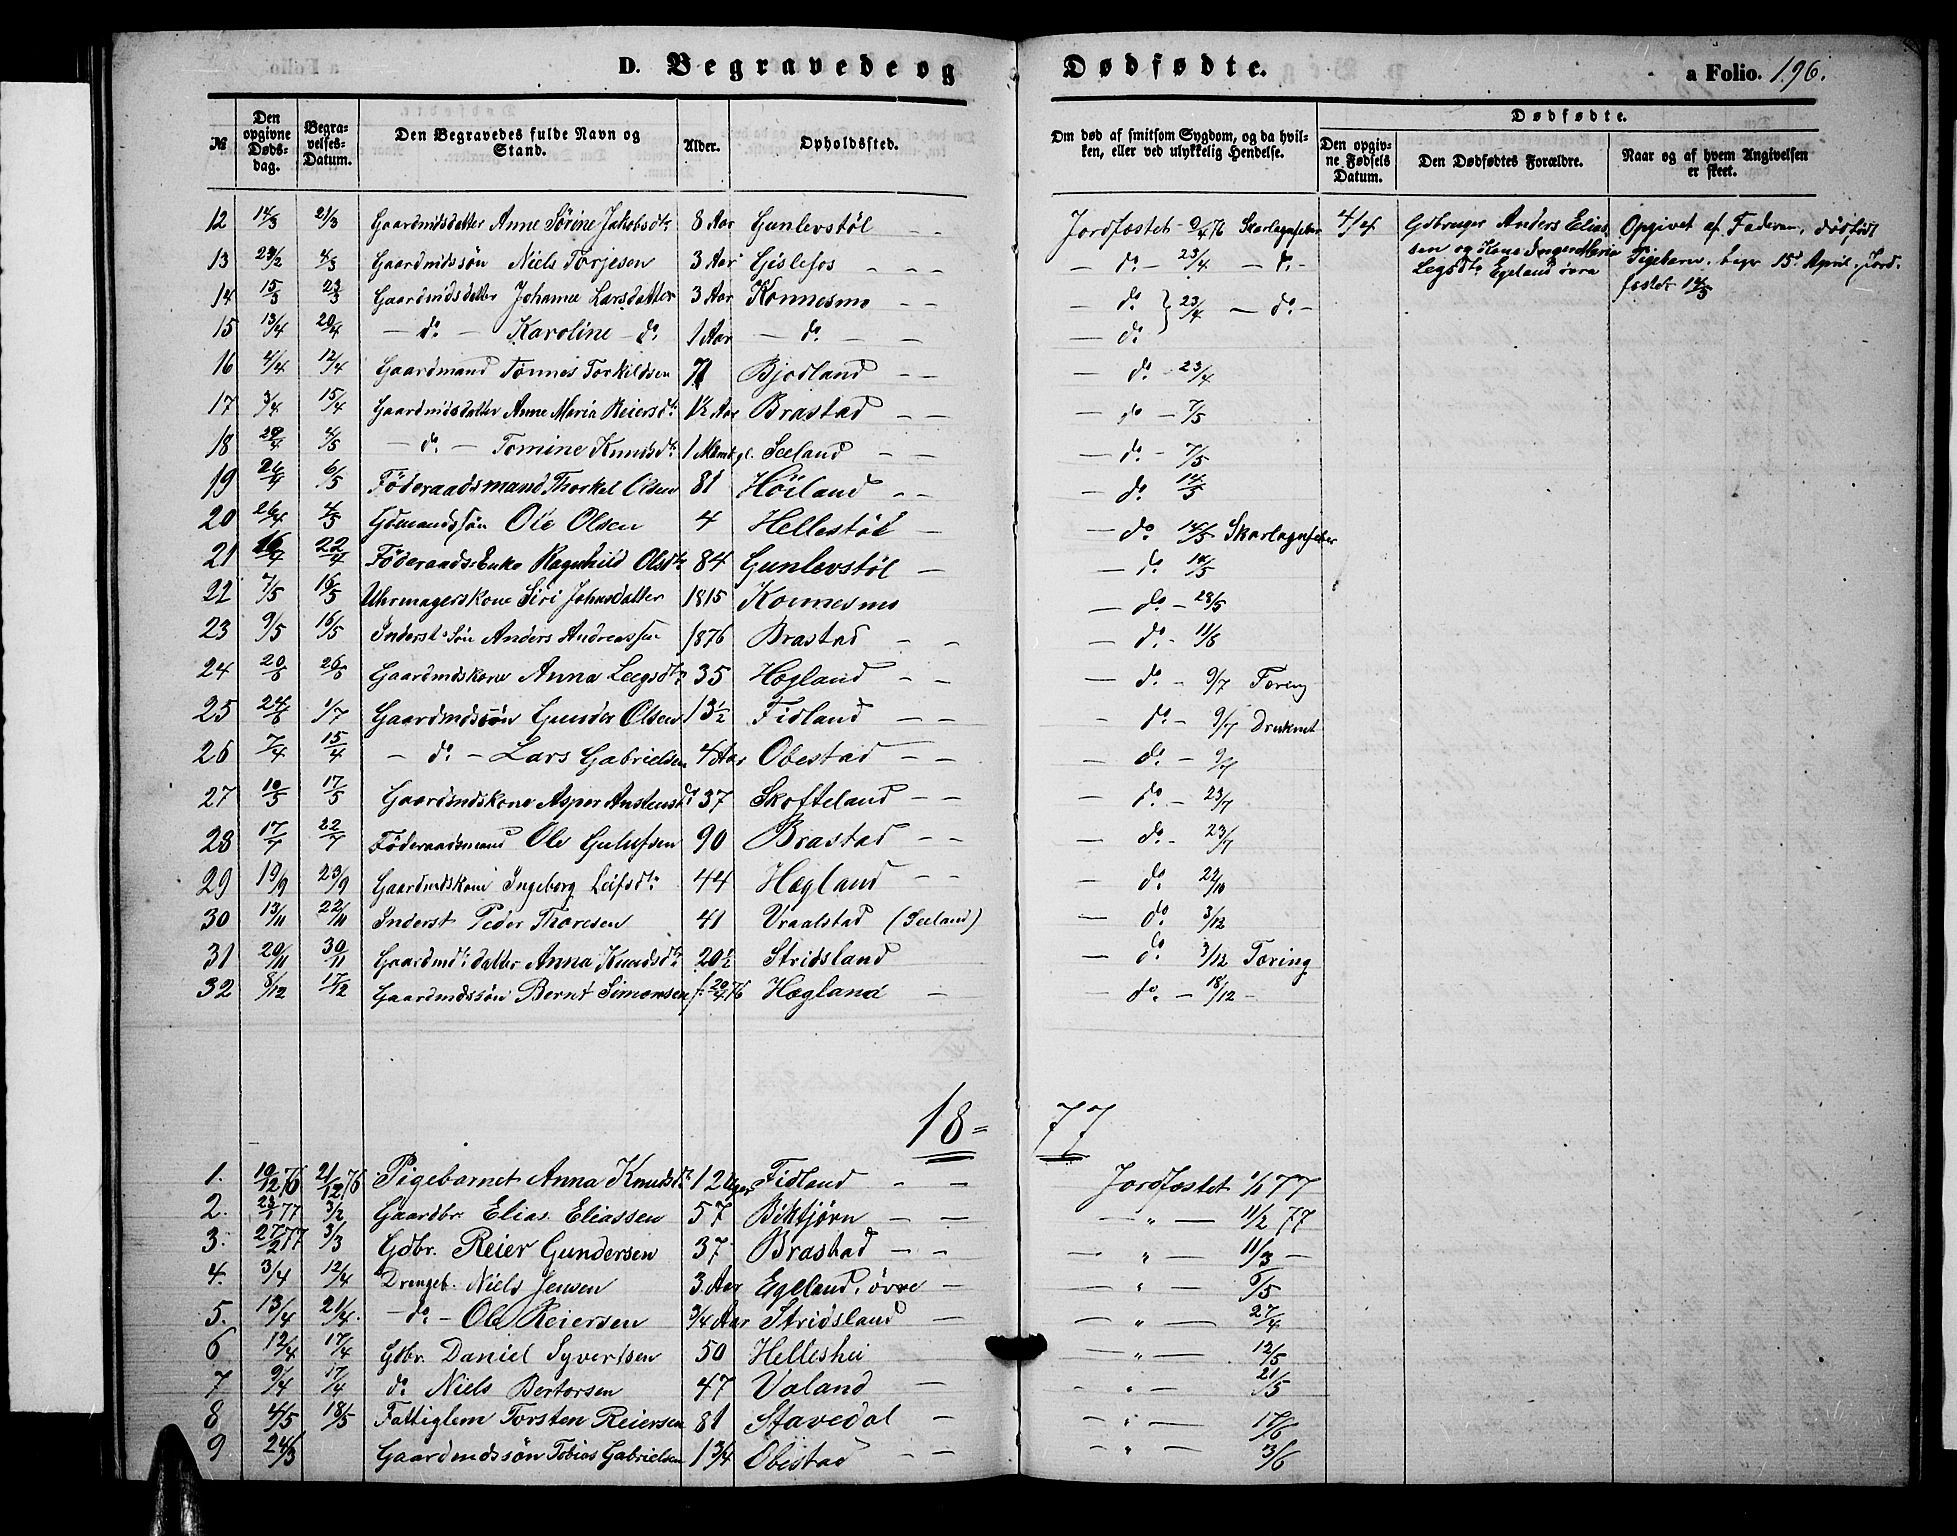 D. Begravede og Dødfødte. a Folio. 196.
№ Den opgivne Døds-dag. Begra-velses-Datum. Den Begravedes fulde Navn og Stand. Alder. Opholdssted. Om død af smitsom Sygdom, og da hvil-ken, eller ved ulykkelig Hendelse. Dødfødte. Den opgiv-ne Fødsels Datum. Den Dødfødtes Forældre. Naar og af hvem Angivelsen er skeet.
12 14/3 21/3 Gaardmdsdatter Anne Sörine Jakobsdtr 8 Aar Gunlevstöl Jordfæstet 9/4 76 Skarlagnsfeber 4/4 Gdbruger Anders Elias- Opgivet af Faderen, dödfödt
sen og Inger Maria Pigebarn, begr 15d April, Jord-
13 23/2 4/3 Gaardmdssön Niels Torjesen 3 Aar Gislefos — — — do — 23/4 — do —
Legsdtr Egeland övre fæstet 14/5
14 15/3 23/3 Gaardmdsdatter Johanne Larsdatter 3 Aar Konnesmo — — — do } 23/4 — do —
15 13/4 20/4 — do — Karoline — do 1 Aar — do — — — do
16 4/4 12/4 Gaardmand Tönnes Torkildsen 71 Bjodland — — — do - 23/4
17 3/4 15/4 Gaardmdsdatter Anne Maria Reiersdtr 1½ Aar Brastad — — — do — 7/5
18 4/5 — do — Tomine Knudsdtr 1 Maaned gl. Seeland — — — do - 7/5
19 24/4 6/5 Föderaadsmand Thorkel Olsen 81 Höiland — — — do 14/5
20 26/4 4/5 Gdmandssön Ole Olsen 4 Hellestöl — — do 14/5 Skarlagnsfeber
21 16/4 22/4 Föderaads-Enke Ragnhild Olsdtr 84 Gunlevstöl — — do 14/5
22 7/5 16/5 Uhrmagerskone Siri Johnsdatter 1815 Konnesmo — do — 28/5
23 9/5 16/5 Inderst-Sön Anders Andreassen 1876 Brastad — — — do - 11/6
24 20/6 26/6 Gaardmdskone Anna Legsdtr 35 Hægland — — — do - 9/7 Tæring
25 24/6 1/7 Gaardmdssön Gunder Olsen 13½ Fidland — — — do - 9/7 Druknet
26 7/4 15/4 — do — Lars Gabrielsen 4 Aar Obestad — — — do - 9/7
27 10/5 17/5 Gaardmdskone Asper Anstensd 37 Skofteland — — — do - 23/7
28 17/7 22/7 Föderaadsmand Ole Gulufsen 90 Brastad — — — do - 23/7
29 19/9 23/9 Gaardmdskone Ingeborg Leifsdtr 44 Hægland — — — do 22/10
30 13/11 22/11 Inderst Peder Thoresen 41 Vraalstad (Seeland) — do 3/12
31 20/11 30/11 Gaardmds datter Anna Knudsdtr 20½ Stridsland — do 3/12 Tæring
32 8/12 17/12 Gaardmdssön Bernt Simonsen f. 20/4 76 Hægland — — do — 18/12 -
18= 77
1. 10/12 76 21/12 76 Pigebarnet Anna Knudsdtr 12 Uger Fidland — — Jordfæstet 1/1 77
2. 23/1 77 3/2 Gaardbr. Elias Eliassen 57 Biktjörn — — — " — 11/2 77
3. 27/2 77 3/3 Gdbr. Reier Gundersen 37 Brastad — — " — 11/3 —
4. 3/4 12/4 Drengeb. Niels Jensen 3 Aar Egeland, övre — " — 6/5
5. 13/4 21/4 — do — Ole Reiersen 3/4 Aar Stridsland — — " — 27/4
6 12/4 17/4 Gdbr. Daniel Syvertsen 50 Helleshei — " — 12/5
7 9/4 17/4 do Niels Bertorsen 47 Valand — - " — 21/5
8 4/5 18/5 Fattiglem Torsten Reiersen 81 Stavedal — - " — 17/6
9 24/3 Gaardmdssön Tobias Gabrielsen 1 3/4 Obestad — — - " — 3/6